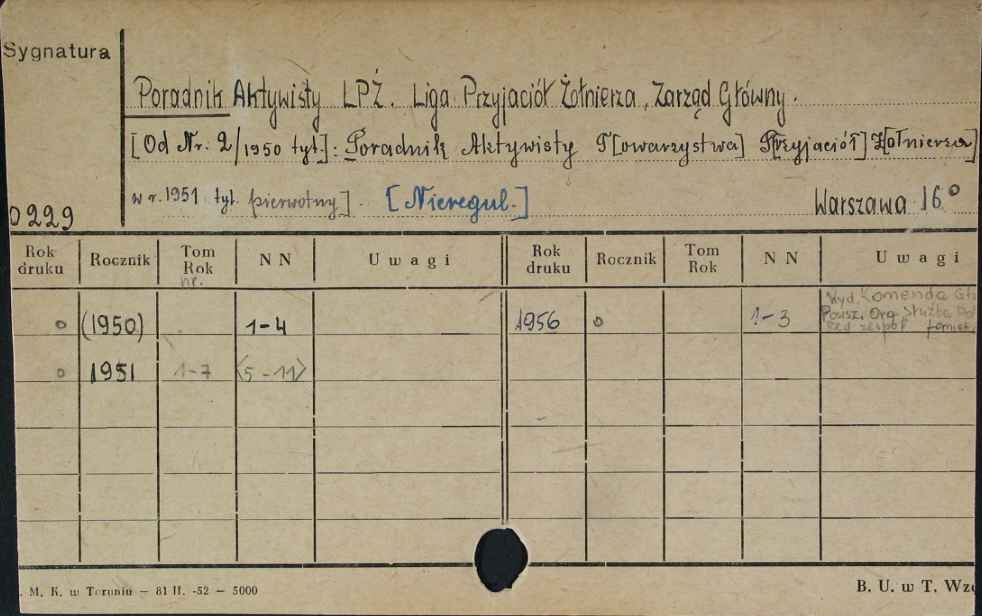 Sygnatura
Poradnik Aktywisty LPŻ. Liga Przyjaciół Żołnierza, Zarząd Główny.
[Od Nr. 2/1950 tyt.]: Poradnik Aktywisty T[owarzystwa] P[rzyjaciół] Ż[ołnierza]
w r. 1951 tyt. pierwotny]. [Nieregul.] Warszawa 16°
0229
Rok druku Rocznik Tom Rok nr. N N Uwagi Rok druku Rocznik Tom Rok N N Uwagi
o (1950) 1-4 1956 o 1-3 Wyd. Komenda Gł.
Powsz. Org. Służba Pol
o 1951 1-7 <5-11>
. M. K. w Toruniu — 81 II. -52 — 5000 B. U. w T. Wzó